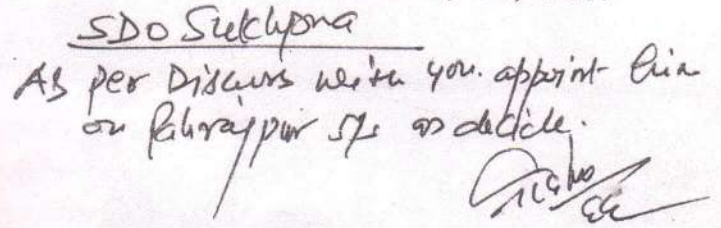 SDO Sukhpura
As per Discuss with you. appoint him
on Pahrajpur S/s as decide.